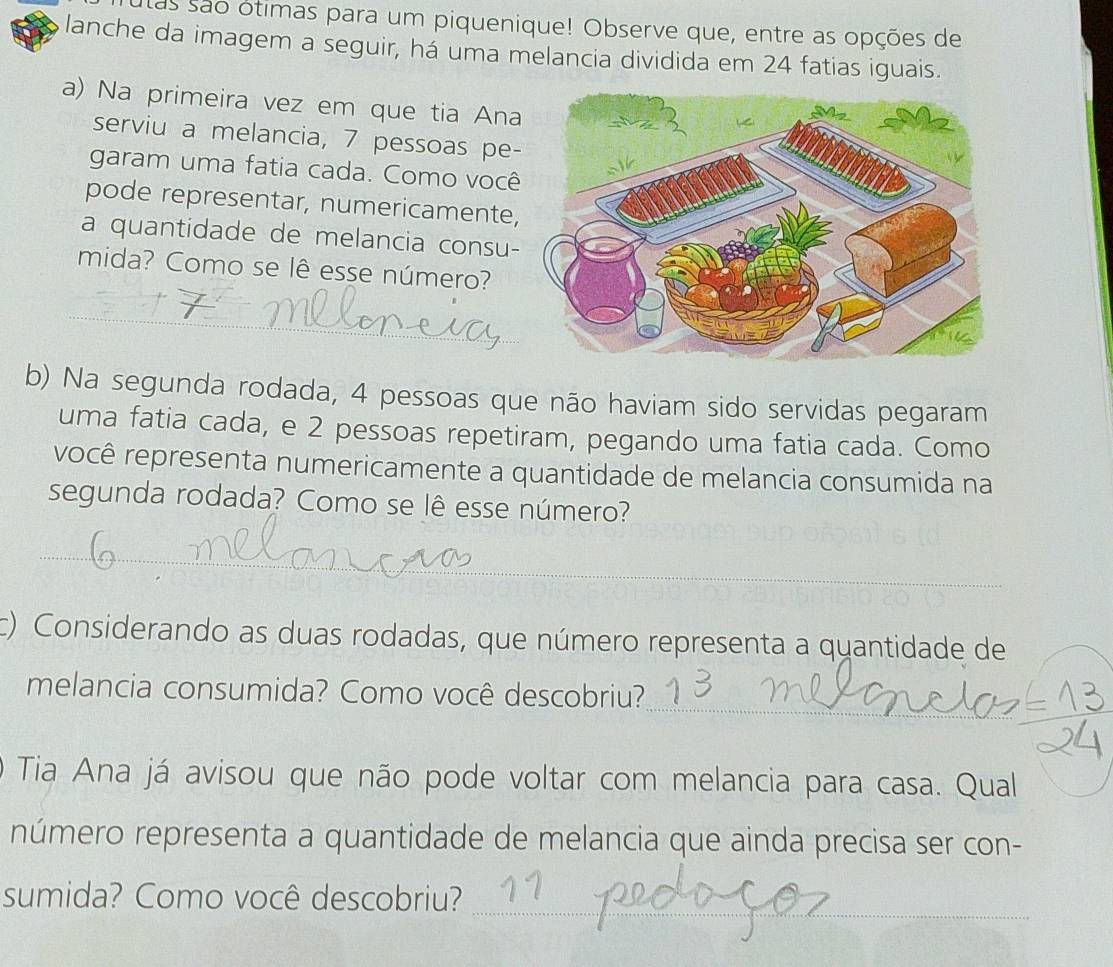 são ótimas para um piquenique! Observe que, entre as opções de
lanche da imagem a seguir, há uma melancia dividida em 24 fatias iguais.
a) Na primeira vez em que tia Ana
serviu a melancia, 7 pessoas pe-
garam uma fatia cada. Como você
pode representar, numericamente,
a quantidade de melancia consu-
mida? Como se lê esse número?
7 meloneia
b) Na segunda rodada, 4 pessoas que não haviam sido servidas pegaram
uma fatia cada, e 2 pessoas repetiram, pegando uma fatia cada. Como
você representa numericamente a quantidade de melancia consumida na
segunda rodada? Como se lê esse número?
6 melancias
c) Considerando as duas rodadas, que número representa a quantidade de
melancia consumida? Como você descobriu? 13 melancias = 13
24
) Tia Ana já avisou que não pode voltar com melancia para casa. Qual
número representa a quantidade de melancia que ainda precisa ser con-
sumida? Como você descobriu? 11 pedaços